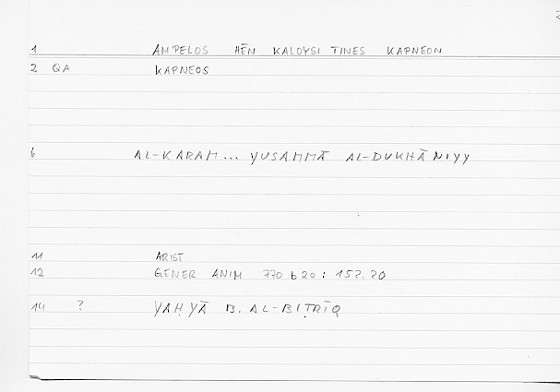 1 AMPELOS HĒN KALOYSI TINES KAPNEON
2 QA KAPNEOS
6 AL-KARAM... YUSAMMĀ AL-DUKHĀNIYY
11 ARIST
12 GENER ANIM 770 b 20 : 152.20
14 ? YAḤYĀ B. AL-BIṬRĪQ